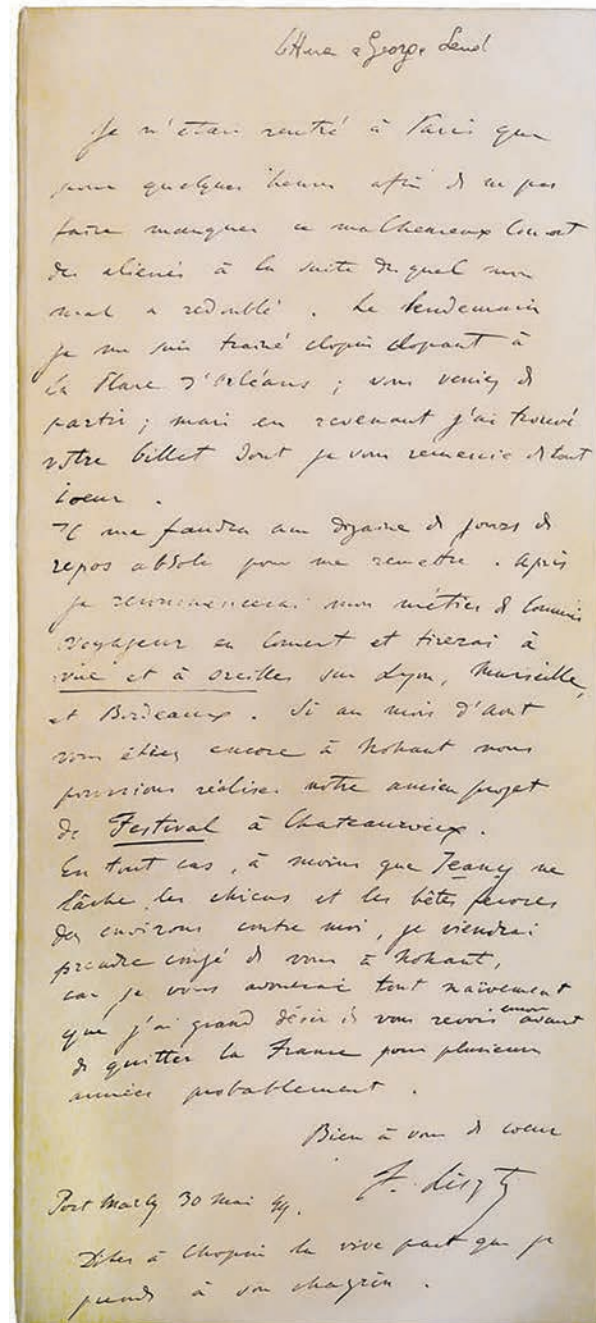 à George Sand
Je n'étais rentré à Paris que
pour quelques heures afin de ne pas
faire manquer ce malheureux Concert
des aliénés à la suite duquel mon
mal a redoublé. Le lendemain
je me suis trainé clopin clopant à
la Place d'Orléans; vous veniez de
partir; mais en revenant j'ai trouvé
votre billet dont je vous remercie de tout
coeur.
Il me faudra une dizaine de jours de
repos absolu pour me remettre. Après
je recommencerai mon métier de Commis
voyageur en Concert et tirerai à
vue et à oreilles sur Lyon, Marseille,
et Bordeaux. Si au mois d'Aout
vous étiez encore à Nohant nous
pourrions réaliser notre ancien projet
de Festival à Chateauroux.
En tout cas, à moins que ne
lâche les chiens et les bêtes féroces
des environs contre moi, je viendrai
prendre congé de vous à Nohant,
car je vous avouerai tout naïvement
que j'ai grand désir de vous revoir encore avant
de quitter la France pour plusieurs
années probablement.
Bien à vous de coeur
F. Liszt
Port Marly 30 Mai 44.
Dites à Chopin la vive part que je
prends à son chagrin.